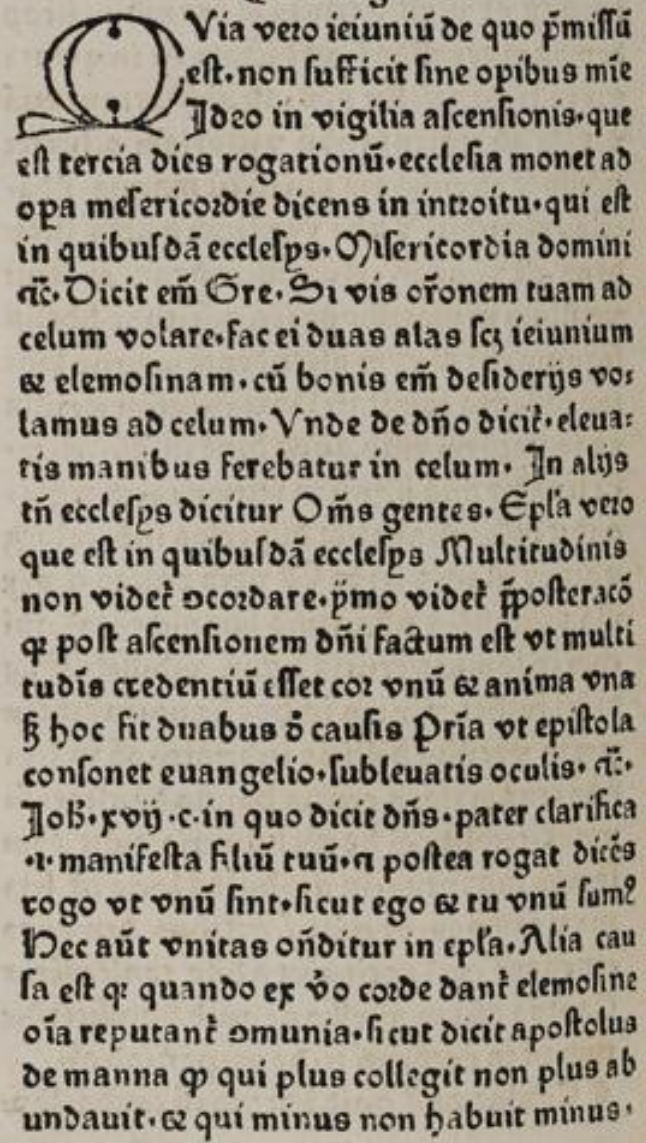 QVia vero ieiuniū de quo p̄missū
est·non sufficit sine opibus mie
Ideo in vigilia ascensionis·que
est tercia dies rogationū·ecclesia monet ad
oꝑa meſericordie dicens in introitu·qui est
in quibusdā ecclesijs·Misericordia domini
⁊c̄·Dicit em̄ Gre·Si vis or̄onem tuam ad
celum volare·fac ei duas alas scꝫ ieiunium
& elemosinam·cū bonis em̄ desiderijs vo⸗
lamus ad celum·Vnde de dn̄o dicit᷑·eleua⸗
tis manibus ferebatur in celum· In alijs
tn̄ ecclesijs dicitur Om̄s gentes·Epl̄a vero
que est in quibusdā ecclesijs Multitudinis
non videt᷑ ↄcordare·p̄mo videt᷑ p̄posteracō
qꝛ post ascensionem dn̄i factum est vt multi
tudīs credentiū esset cor vnū & anima vna
sꝫ hoc fit duabus d̄ causis Prīa vt epistola
consonet euangelio·subleuatis oculis· ⁊c̄·
Joh̄·xvij·c·in quo dicit dn̄s·pater clarifica
·i·manifesta filiū tuū·⁊ postea rogat dicēs
rogo vt vnū sint·sicut ego & tu vnū sumꝰ
Hec aūt vnitas on̄ditur in epl̄a·Alia cau
sa est qꝛ quando ex v̄o corde dant᷑ elemosine
oīa reputant᷑ ↄmunia·sicut dicit apostolus
de manna ꝙ qui plus collegit non plus ab
undauit·& qui minus non habuit minus·